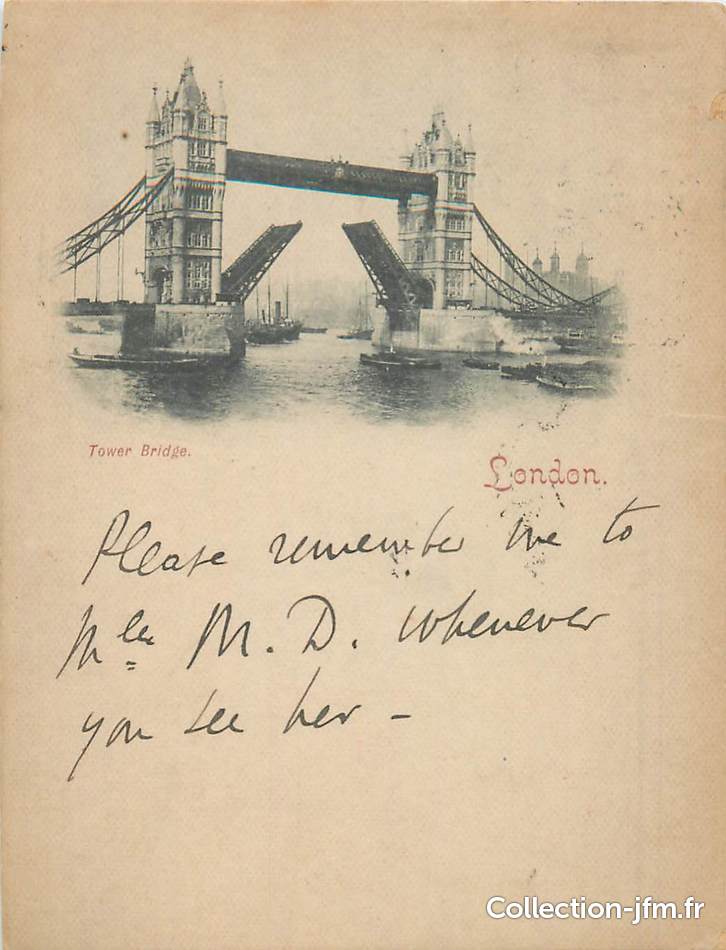 Tower Bridge.
London.
Please remember me to
Mlle M. D. whenever
you see her –
Collection-jfm.fr